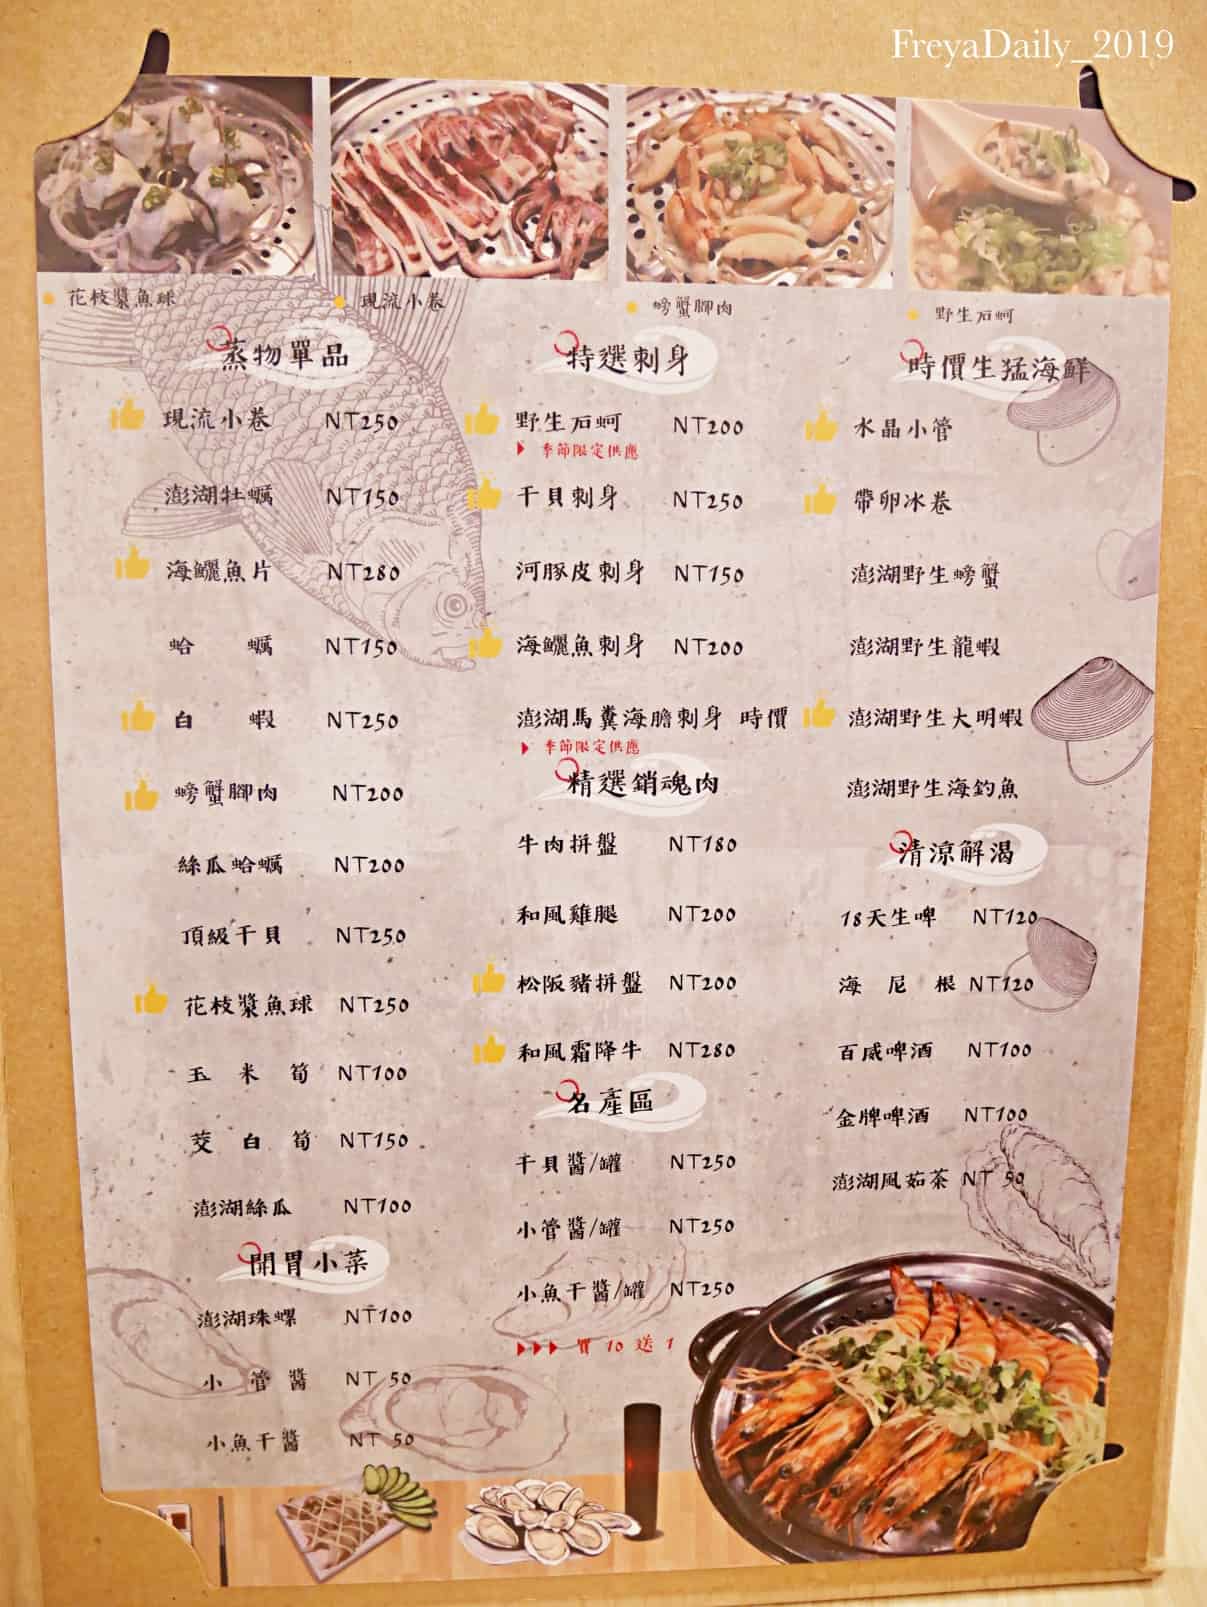 FreyaDaily_2019
花枝漿魚球
現流小卷
螃蟹腳肉
野生石蚵
蒸物單品
現流小卷 NT250
澎湖牡蠣 NT150
海鱺魚片 NT280
蛤蠣 NT150
白蝦 NT250
螃蟹腳肉 NT200
絲瓜蛤蠣 NT200
頂級干貝 NT250
花枝漿魚球 NT250
玉米筍 NT100
茭白筍 NT150
澎湖絲瓜 NT100
開胃小菜
澎湖珠螺 NT100
小管醬 NT 50
小魚干醬 NT 50
特選刺身
野生石蚵 NT200
季節限定供應
干貝刺身 NT250
河豚皮刺身 NT150
海鱺魚刺身 NT200
澎湖馬糞海膽刺身 時價
季節限定供應
精選銷魂肉
牛肉拼盤 NT180
和風雞腿 NT200
松阪豬拼盤 NT200
和風霜降牛 NT280
名產區
干貝醬/罐 NT250
小管醬/罐 NT250
小魚干醬/罐 NT250
買 10 送 1
時價生猛海鮮
水晶小管
帶卵冰卷
澎湖野生螃蟹
澎湖野生龍蝦
澎湖野生大明蝦
澎湖野生海釣魚
清涼解渴
18天生啤 NT120
海尼根 NT120
百威啤酒 NT100
金牌啤酒 NT100
澎湖風茹茶 NT 50